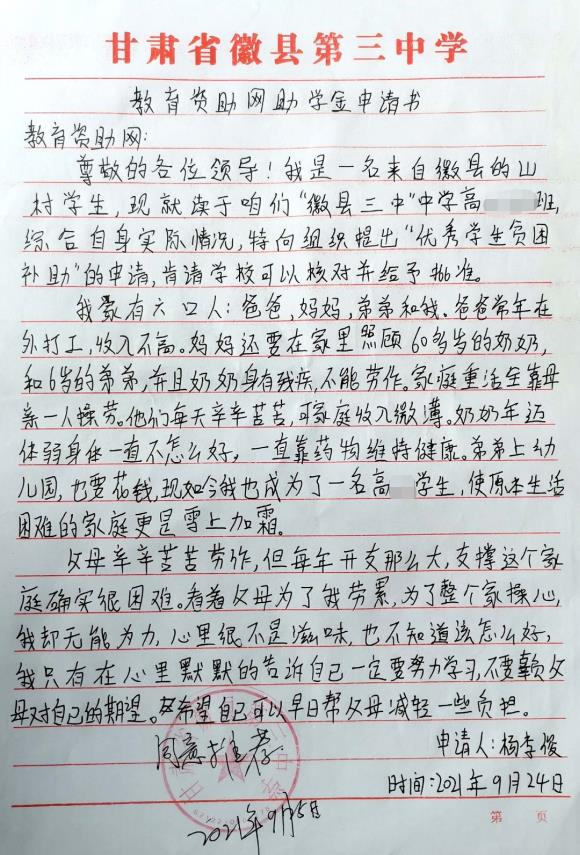 甘肃省徽县第三中学
教育资助网助学金申请书
教育资助网:
尊敬的各位领导!我是一名来自徽县的山
村学生,现就读于咱们“徽县三中”中学高班,
综合自身实际情况,特向组织提出“优秀学生贫困
补助”的申请,肯请学校可以核对并给予批准。
我家有六口人:爸爸,妈妈,弟弟和我。爸爸常年在
外打工,收入不高。妈妈还要在家里照顾60多岁的奶奶,
和6岁的弟弟,并且奶奶身有残疾,不能劳作。家庭重活全靠母
亲一人操劳。他们每天辛辛苦苦,可家庭收入微薄。奶奶年迈
体弱身体一直不怎么好,一直靠药物维持健康。弟弟上幼
儿园,也要花钱,现如今我也成为了一名高学生,使原本生活
困难的家庭更是雪上加霜。
父母辛辛苦苦劳作,但每年开支那么大,支撑这个家
庭确实很困难。看着父母为了我劳累,为了整个家操心,
我却无能为力,心里很不是滋味,也不知道该怎么好,
我只有在心里默默的告诉自己一定要努力学习,不要辜负父
母对自己的期望。希望自己可以早日帮父母减轻一些负担。
同意推荐
申请人:杨李俊
时间:2021年9月24日
2021年9月25日
第 页